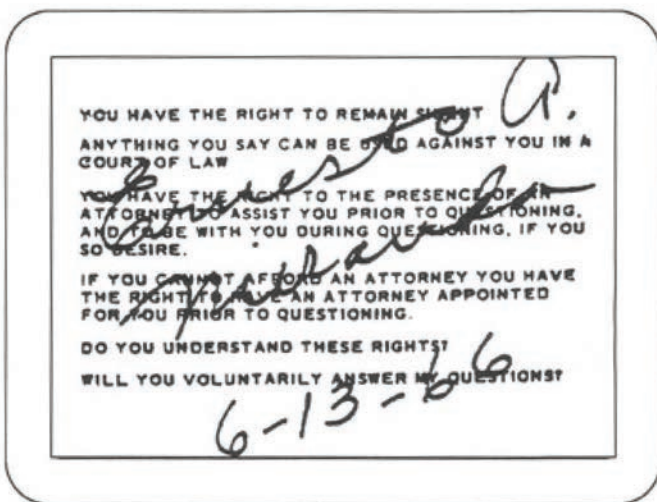 YOU HAVE THE RIGHT TO REMAIN SILENT
ANYTHING YOU SAY CAN BE USED AGAINST YOU IN A
COURT OF LAW
YOU HAVE THE RIGHT TO THE PRESENCE OF AN
ATTORNEY TO ASSIST YOU PRIOR TO QUESTIONING,
AND TO BE WITH YOU DURING QUESTIONING, IF YOU
SO DESIRE.
IF YOU CANNOT AFFORD AN ATTORNEY YOU HAVE
THE RIGHT TO HAVE AN ATTORNEY APPOINTED
FOR YOU PRIOR TO QUESTIONING.
DO YOU UNDERSTAND THESE RIGHTS?
WILL YOU VOLUNTARILY ANSWER MY QUESTIONS?
Ernesto A.
Miranda
6-13-66